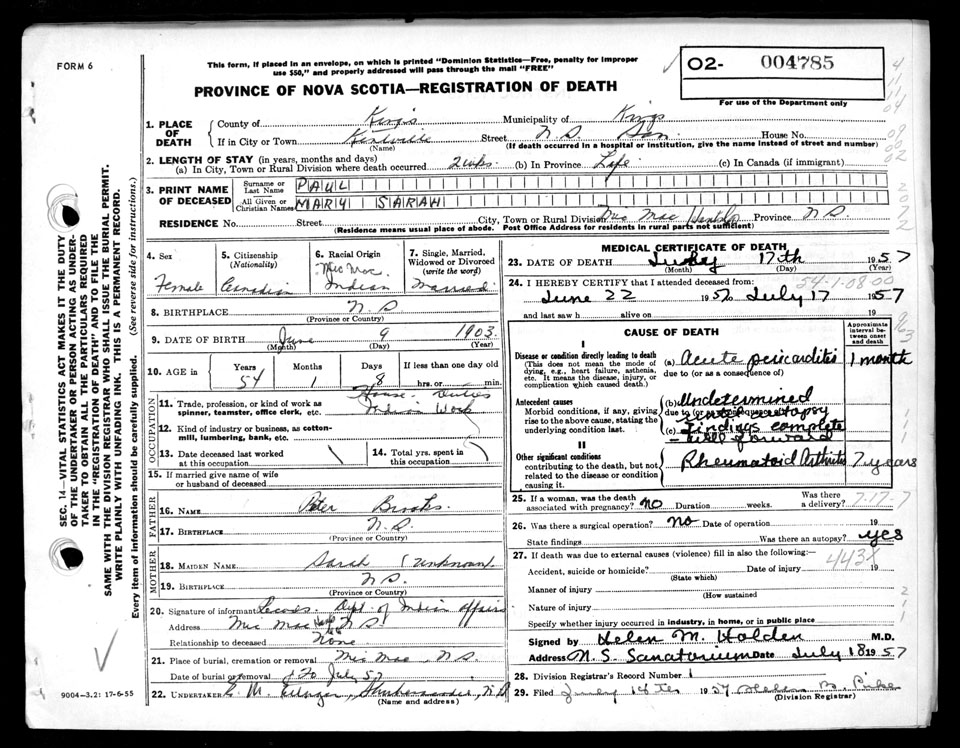 FORM 6
This form, if placed in an envelope, on which is printed "Dominion Statistics—Free, penalty for improper
use $50," and properly addressed will pass through the mail "FREE"
PROVINCE OF NOVA SCOTIA—REGISTRATION OF DEATH
02- 004785
For use of the Department only
1. PLACE OF DEATH
County of Kings Municipality of Kings
If in City or Town Kentville Street N.S. San. House No.
(Name) (If death occurred in a hospital or institution, give the name instead of street and number)
2. LENGTH OF STAY (in years, months and days)
(a) In City, Town or Rural Division where death occurred 2 wks. (b) In Province Life (c) In Canada (if immigrant)
3. PRINT NAME OF DECEASED
Surname or Last Name PAUL
All Given or Christian Names MARY SARAH
RESIDENCE No. Street City, Town or Rural Division Mic Mac Hants Co Province N.S.
(Residence means usual place of abode. Post Office Address for residents in rural parts not sufficient)
4. Sex Female
5. Citizenship (Nationality) Canadian
6. Racial Origin Mic Mac Indian
7. Single, Married, Widowed or Divorced (write the word) Married
8. BIRTHPLACE N.S.
(Province or Country)
9. DATE OF BIRTH June 9 1903
(Month) (Day) (Year)
10. AGE in Years Months Days If less than one day old
54 1 8 hrs. or min.
OCCUPATION
11. Trade, profession, or kind of work as spinner, teamster, office clerk, etc. House Duties Indian Work
12. Kind of industry or business, as cotton-mill, lumbering, bank, etc.
13. Date deceased last worked at this occupation
14. Total yrs. spent in this occupation
15. If married give name of wife or husband of deceased
FATHER
16. NAME Peter Brooks
17. BIRTHPLACE N.S.
(Province or Country)
MOTHER
18. MAIDEN NAME Sarah (unknown)
19. BIRTHPLACE N.S.
(Province or Country)
20. Signature of informant Records. Dept of Indian Affairs
Address Mic Mac Hants Co N.S.
Relationship to deceased None
21. Place of burial, cremation or removal Mic Mac, N.S.
Date of burial or removal 20 July 57
22. UNDERTAKER E. M. N.S.
(Name and address)
MEDICAL CERTIFICATE OF DEATH
23. DATE OF DEATH July 17th 1957
(Month) (Day) (Year)
24. I HEREBY CERTIFY that I attended deceased from: 54-1-08-00
June 22 1957 to July 17 1957
and last saw h alive on 19
CAUSE OF DEATH
Approximate interval between onset and death
I
Disease or condition directly leading to death
(This does not mean the mode of dying, e.g., heart failure, asthenia, etc. It means the disease, injury, or complication which caused death.)
(a) Acute pericarditis 1 month
due to (or as a consequence of)
Antecedent causes
Morbid conditions, if any, giving rise to the above cause, stating the underlying condition last.
(b) Undetermined
due to (or as a consequence of)
until autopsy
(c) findings complete
- will forward
II
Other significant conditions
contributing to the death, but not related to the disease or condition causing it.
Rheumatoid Arthritis 7 years
25. If a woman, was the death associated with pregnancy? NO Duration weeks. Was there a delivery? 7-17-7
26. Was there a surgical operation? NO Date of operation 19
State findings Was there an autopsy? yes
27. If death was due to external causes (violence) fill in also the following:—
Accident, suicide or homicide? Date of injury 19 443X
(State which)
Manner of injury
(How sustained)
Nature of injury
Specify whether injury occurred in industry, in home, or in public place
Signed by Helen M. Holden M.D.
Address N.S. Sanatorium Date July 18 1957
28. Division Registrar's Record Number 1
29. Filed July 18th 1957
(Division Registrar)
SEC. 14—VITAL STATISTICS ACT MAKES IT THE DUTY
OF THE UNDERTAKER OR PERSON ACTING AS UNDER-
TAKER TO OBTAIN ALL THE PARTICULARS REQUIRED
IN THE "REGISTRATION OF DEATH" AND TO FILE THE
SAME WITH THE DIVISION REGISTRAR WHO SHALL ISSUE THE BURIAL PERMIT.
WRITE PLAINLY WITH UNFADING INK. THIS IS A PERMANENT RECORD.
Every item of information should be carefully supplied. (See reverse side for instructions.)
9004—3.21 17-6-55